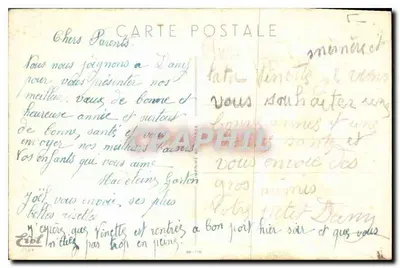 CARTE POSTALE
Chers Parents
Nous nous joignons a Dany
pour vous présenter nos
meilleurs vœux de bonne et
heureuse année et surtout
de bonne santé et vous
envoyer nos meilleurs baisers
Vos enfants qui vous aime
Madeleine Gaston
Joël vous envoie ses plus
belles risettes
J'espère que Ninette est rentrée à bon port hier soir et que vous
n'étiez pas trop en peine
mémère et
tatie Ninette je vous
vous souhaitez une
bonne année et une
santé et
vous envoie des
gros mimis
votre petit Dany
PARPHILA